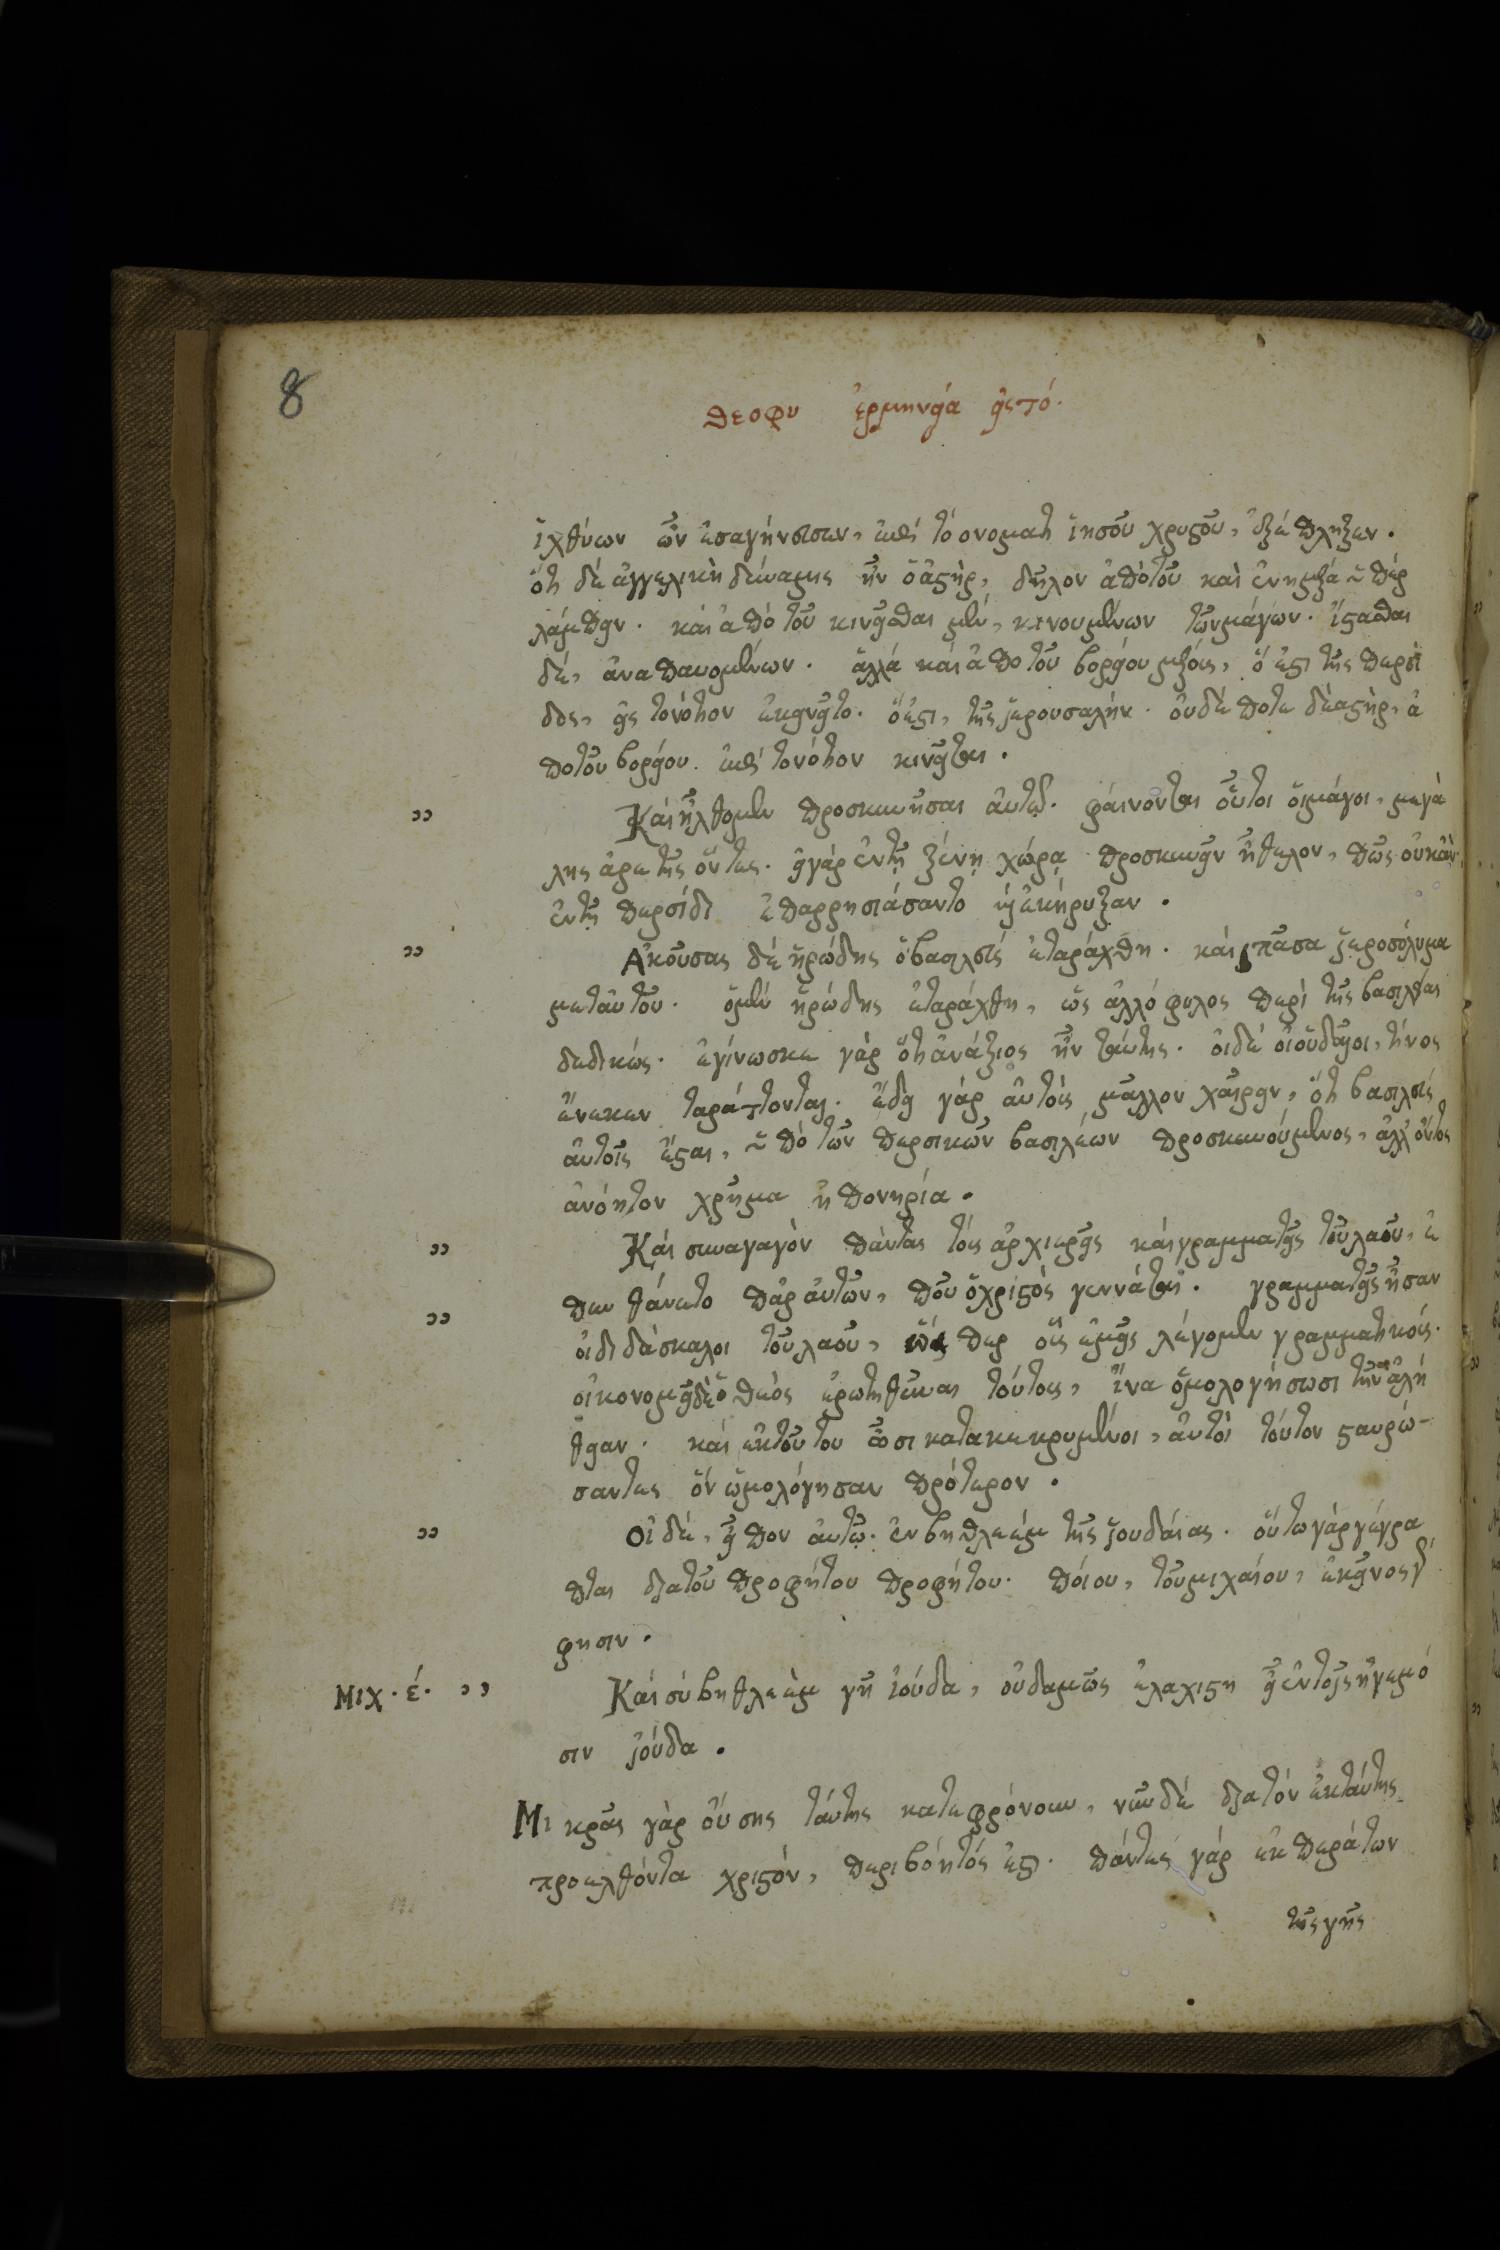 8
θεοφυ ἑρμηνεία εἰς τό.
ἰχθύων ὧν ἐσαγήνευσαν, ἐπί τό ονοματι ἰησοῦ χρυστοῦ, ἐξέπληξεν.
ὅτι δέ ἀγγελικὴ δύναμις ἦν ὁ ἀστὴρ, δῆλον ἀπὸ τοῦ καὶ ἐν ημέρᾳ ὑπέρ
λάμπειν. καὶ ἀπό τοῦ κινεῖσθαι μέν, κινουμένων τῶν μάγων. ἵστασθαι
δέ, ἀναπαυομένων. ἀλλά καὶ ἀπο τοῦ βορείου μέρους, ὅ ἐστι τῆς περσί
δος, εἰς τόνότον ἐκινεῖτο. ὅ ἐστι, τῆς ἱερουσαλήμ. ὀυδέ ποτε δέ ἀστὴρ, ἀ
πο τοῦ βορείου ἐπί τον ότον κινεῖται.
,, Κάι ἤλθομεν προσκυνῆσαι ἀυτῷ. φάινονται οὗτοι ὁι μάγοι, μεγά
λης ἀρετῆς ὄντες. εἰ γάρ ἐν τῇ ξένῃ χώρᾳ προσκυνεῖν ἤθελον, πῶς οὐκ ἂν
ἐν τῇ περσίδι ἐπαρρησιάσαντο καὶ ἐκήρυξαν.
,, Ἀκούσας δέ ἡρώδης ὁ βασιλεύς ἐταράχθη. κάι πᾶσα ἱεροσόλυμα
μετ αὐτοῦ. ὁ μέν ἡρώδης ἐταράχθη, ὡς ἀλλόφυλος περὶ τῆς βασιλείας
δεδικώς. ἐγίνωσκε γὰρ ὅτι ἀνάξιος ἦν ταύτης. ὁι δέ ὁι οὐδαῖοι, τίνος
ἕνεκεν ταράττονται. ἔδει γάρ ἀυτόις μᾶλλον χαίρειν, ὅτι βασιλεύς
ἀυτοῖς ἔσται, ὑπὸ τῶν περσικῶν βασιλέων προσκυνούμενος, ἀλλ ὄντος
ἀνόητον χρῆμα ἡ πονηρία.
,, Κάι συναγαγὸν πάντας τόυς ἀρχιερεῖς κάι γραμματεῖς τοῦ λαοῦ, ἐ
πυνθάνετο παρ ἀυτῶν, ποῦ ὁ χριστὸς γεννάται. γραμματεῖς ἦσαν
,, ὁι διδάσκαλοι τοῦ λαοῦ, ὥσπερ οὓς ἐμεῖς λέγομεν γραμματικόυς.
οἰκονομεῖ δὲ ὁ θεὸς ἐρωτηθῆναι τόυτους, ἵνα ὁμολογήσωσι τὴν ἀλή
θειαν. κάι ἐκ τοῦτου ὦσι κατακεκριμένοι, ἀυτὸι τόυτον σταυρώ-
σαντες ὅν ὡμολόγησαν πρότερον.
,, ὁἱ δέ, εἶπον ἀυτῷ. ἐν βηθλεὲμ τῆς ἰουδάιας. ὅυτω γὰρ γέγρα
πται διὰ τοῦ προφήτου προφήτου. πόιου, τοῦ μιχαίου, ἐκεῖνος γ
φησιν.
Μιχ. έ. ,, Κάι σύ βηθλεὲμ γῆ ἰούδα, οὐδαμῶς ἐλαχιστη εἶ ἐν τοῖς ἡγεμό
σιν ἰούδα.
Μικρᾶς γὰρ ὄυσης τάυτης κατεφρόνουν, νῦν δέ διὰ τόν ἐκ τάυτης
προελθόντα χριστόν, περιβόητός ἐστι. πάντες γάρ ἐκ περάτων
τῆς γῆς